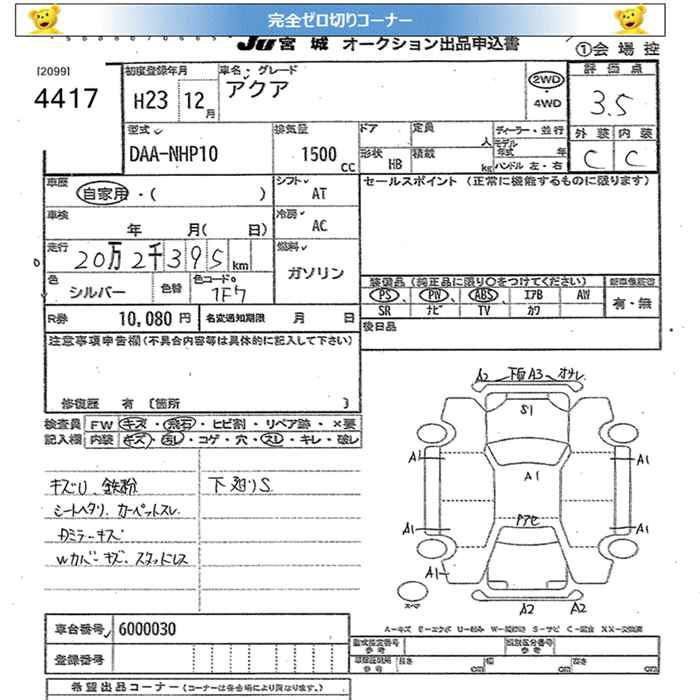 完全ゼロ切りコーナー
JU宮城 オークション出品申込書 ①会場控
[2099]
4417
初度登録年月 車名・グレード 評価点
H23 12月 アクア 2WD・4WD 3.5
型式 排気量 ドア 定員 人 ディーラー・並行 外装 内装
DAA-NHP10 1500cc 形状 HB 積載 kg モデル年式 年 ハンドル 左・右 C C
車歴 自家用・( ) シフト AT セールスポイント (正常に機能するものに限ります)
車検 年 月( 日) 冷房 AC
走行 20万2千395km 燃料 ガソリン
色 シルバー 色替 色コードNo 1F7
装備品 (純正品に限り○をつけてください)
PS、PW、ABS、エアB AW 有・無
SR ナビ TV カワ
R券 10,080円 名変通知期限 月 日 後日品
注意事項申告欄(不具合内容等は具体的に記入して下さい)
修復歴 有 〔箇所 〕
検査員記入欄 FW キズ・飛石・ヒビ割・リペア跡・×要
内装 キズ・汚レ・コゲ・穴・スレ・キレ・破レ
キズU、鉄粉 下廻りS
シートヘタリ、カーペットスレ
Wカバーキズ、スタッドレス
A2 下目A3
S1
A1
A1 A1
A1 A1
A1
A2 A2
A-キズ
車台番号 6000030
登録番号
型式指定番号 類別区分番号
長さ cm 幅 cm 高さ cm
希望出品コーナー (コーナーは各会場により異なります。)